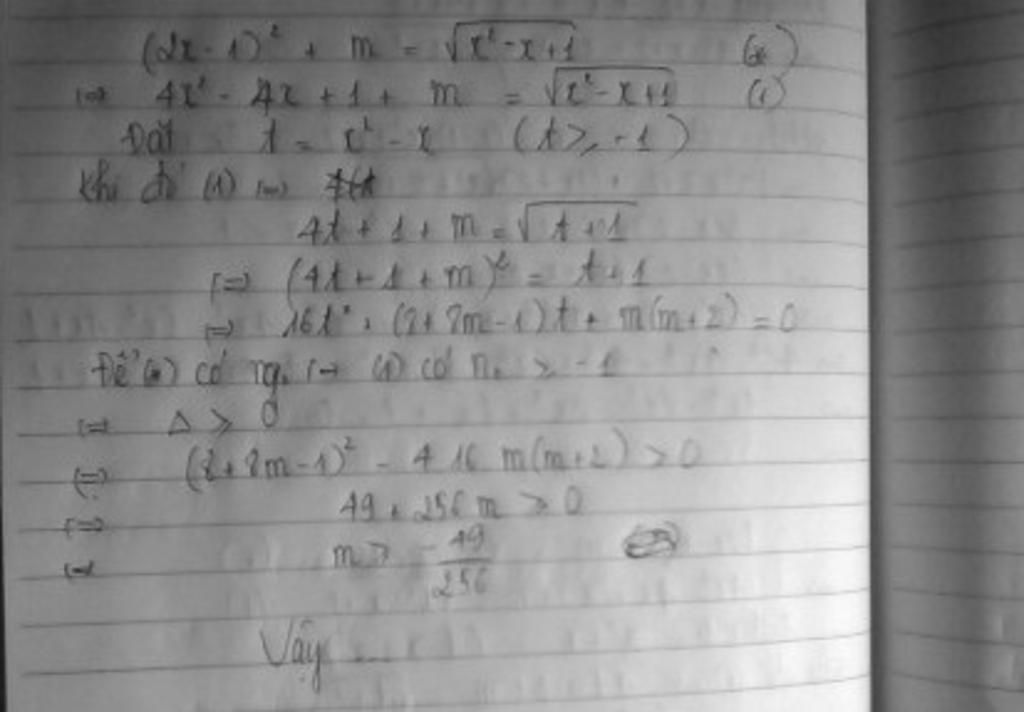 (2x - 1)² + m = √(x² - x + 1) (*)
⇔ 4x² - 4x + 1 + m = √(x² - x + 1) (1)
Đặt t = x² - x (t ≥ -1)
Khi đó (1) ⇔
4t + 1 + m = √(t + 1)
⇔ (4t + 1 + m)² = t + 1
⇔ 16t² + (8 + 8m - 1)t + m(m + 2) = 0
Để (*) có ng. ⇔ (1) có n. ≥ -1
⇔ Δ ≥ 0
⇔ (8 + 8m - 1)² - 4.16 m(m + 2) ≥ 0
⇔ 49 - 256m ≥ 0
⇔ m ≥ -49/256
Vậy ....